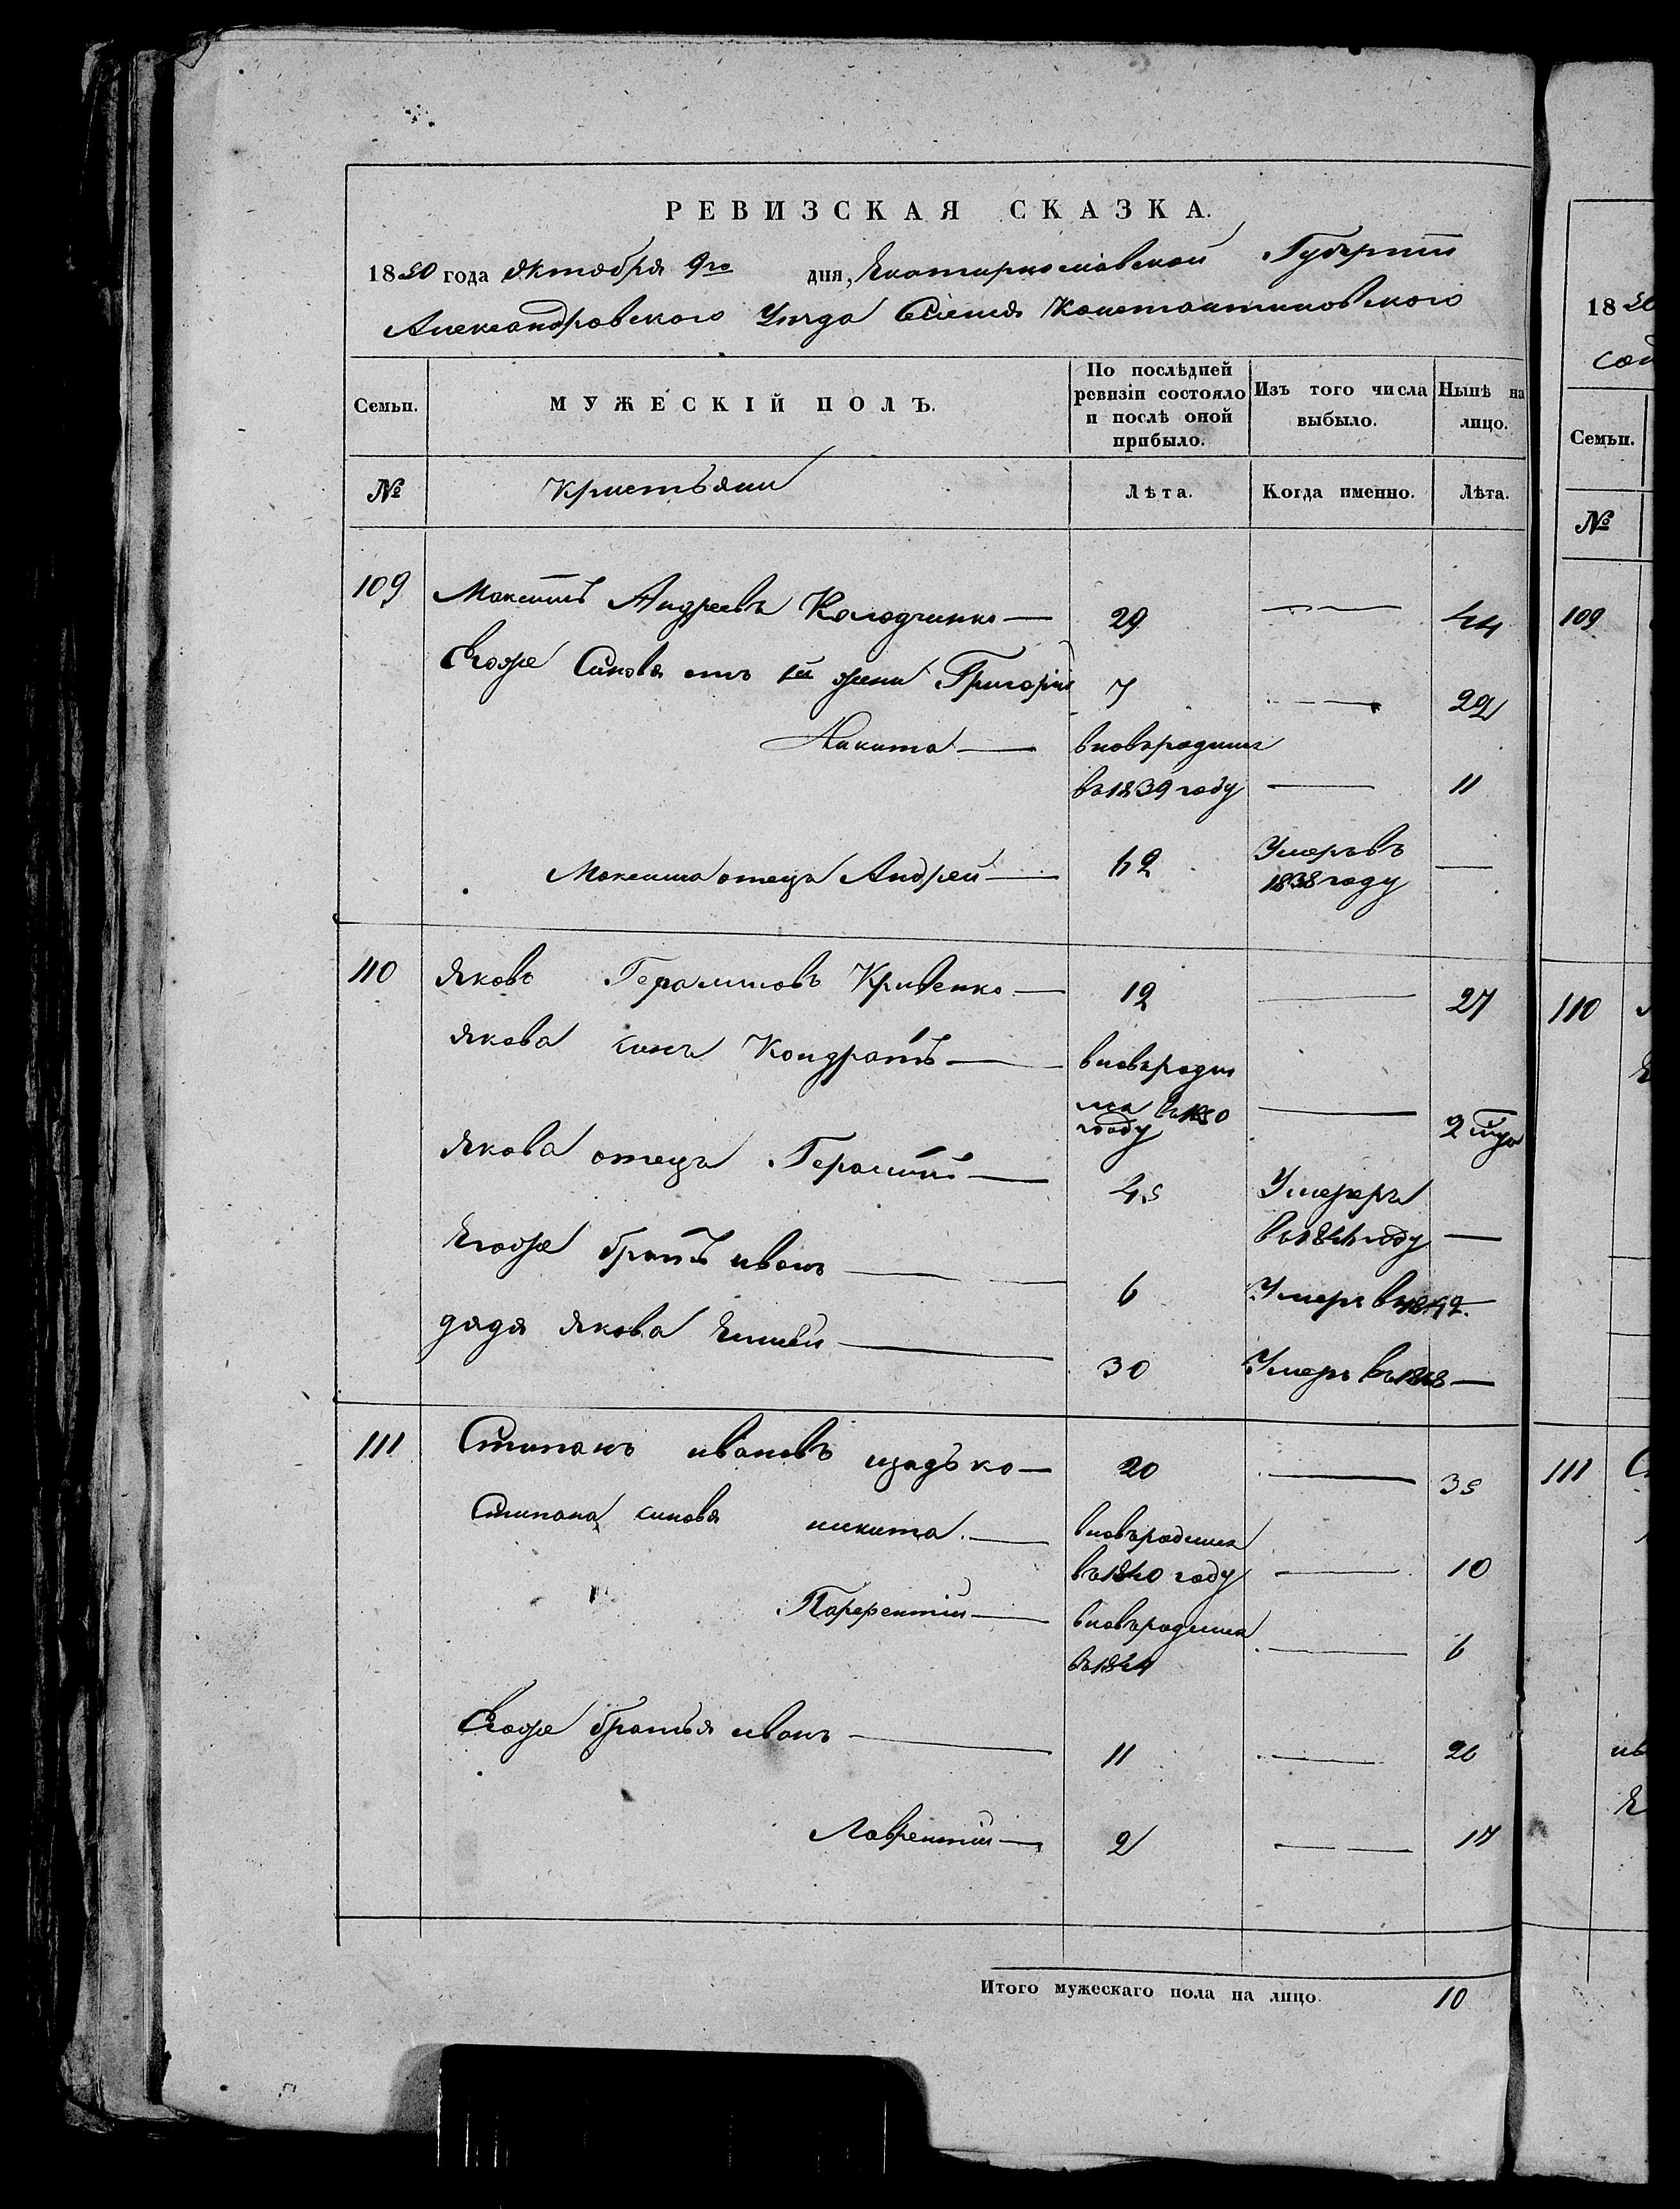 РЕВИЗСКАЯ СКАЗКА.
1850 года октября 9го дня, Екатеринославской Губернии
Александровского Уезда Селения Константиновского
Семьи.
МУЖЕСКІЙ ПОЛЪ.
По послѣдней ревизіи состояло и послѣ оной прибыло.
Изъ того числа выбыло.
Нынѣ на лицо.
№ Кристьяни Лѣта. Когда именно. Лѣта.
109 Максимъ Андреевъ Колодченко — 29 — 44
Егоже Синовя отъ 1й жени Григорій 7 — 22
Никита — вновъродился
въ 1839 году — 11
Максима отецъ Андрей — 62 Умеръ въ 1838 году —
110 Яковъ Герасимовъ Кривенко — 12 — 27
Якова синъ Кондратъ — вновъроди
лся въ 1850 году — 2
Якова отецъ Герасимъ — 45 Умеръ
году —
Егоже братъ иванъ — 6 Умеръ въ 1842 —
дядя Якова Елисей — 30 Умеръ въ 1848 —
111 Степанъ ивановъ — 20 — 35
Степана синовя никита — вновъродился
въ 1840 году — 10
Парфентій — вновъродился
въ 1844 — 6
Егоже братья иванъ — 11 — 26
Лаврентій — 2 — 17
Итого мужескаго пола на лицо. 10
1850
Семьи.
№
109
110
111